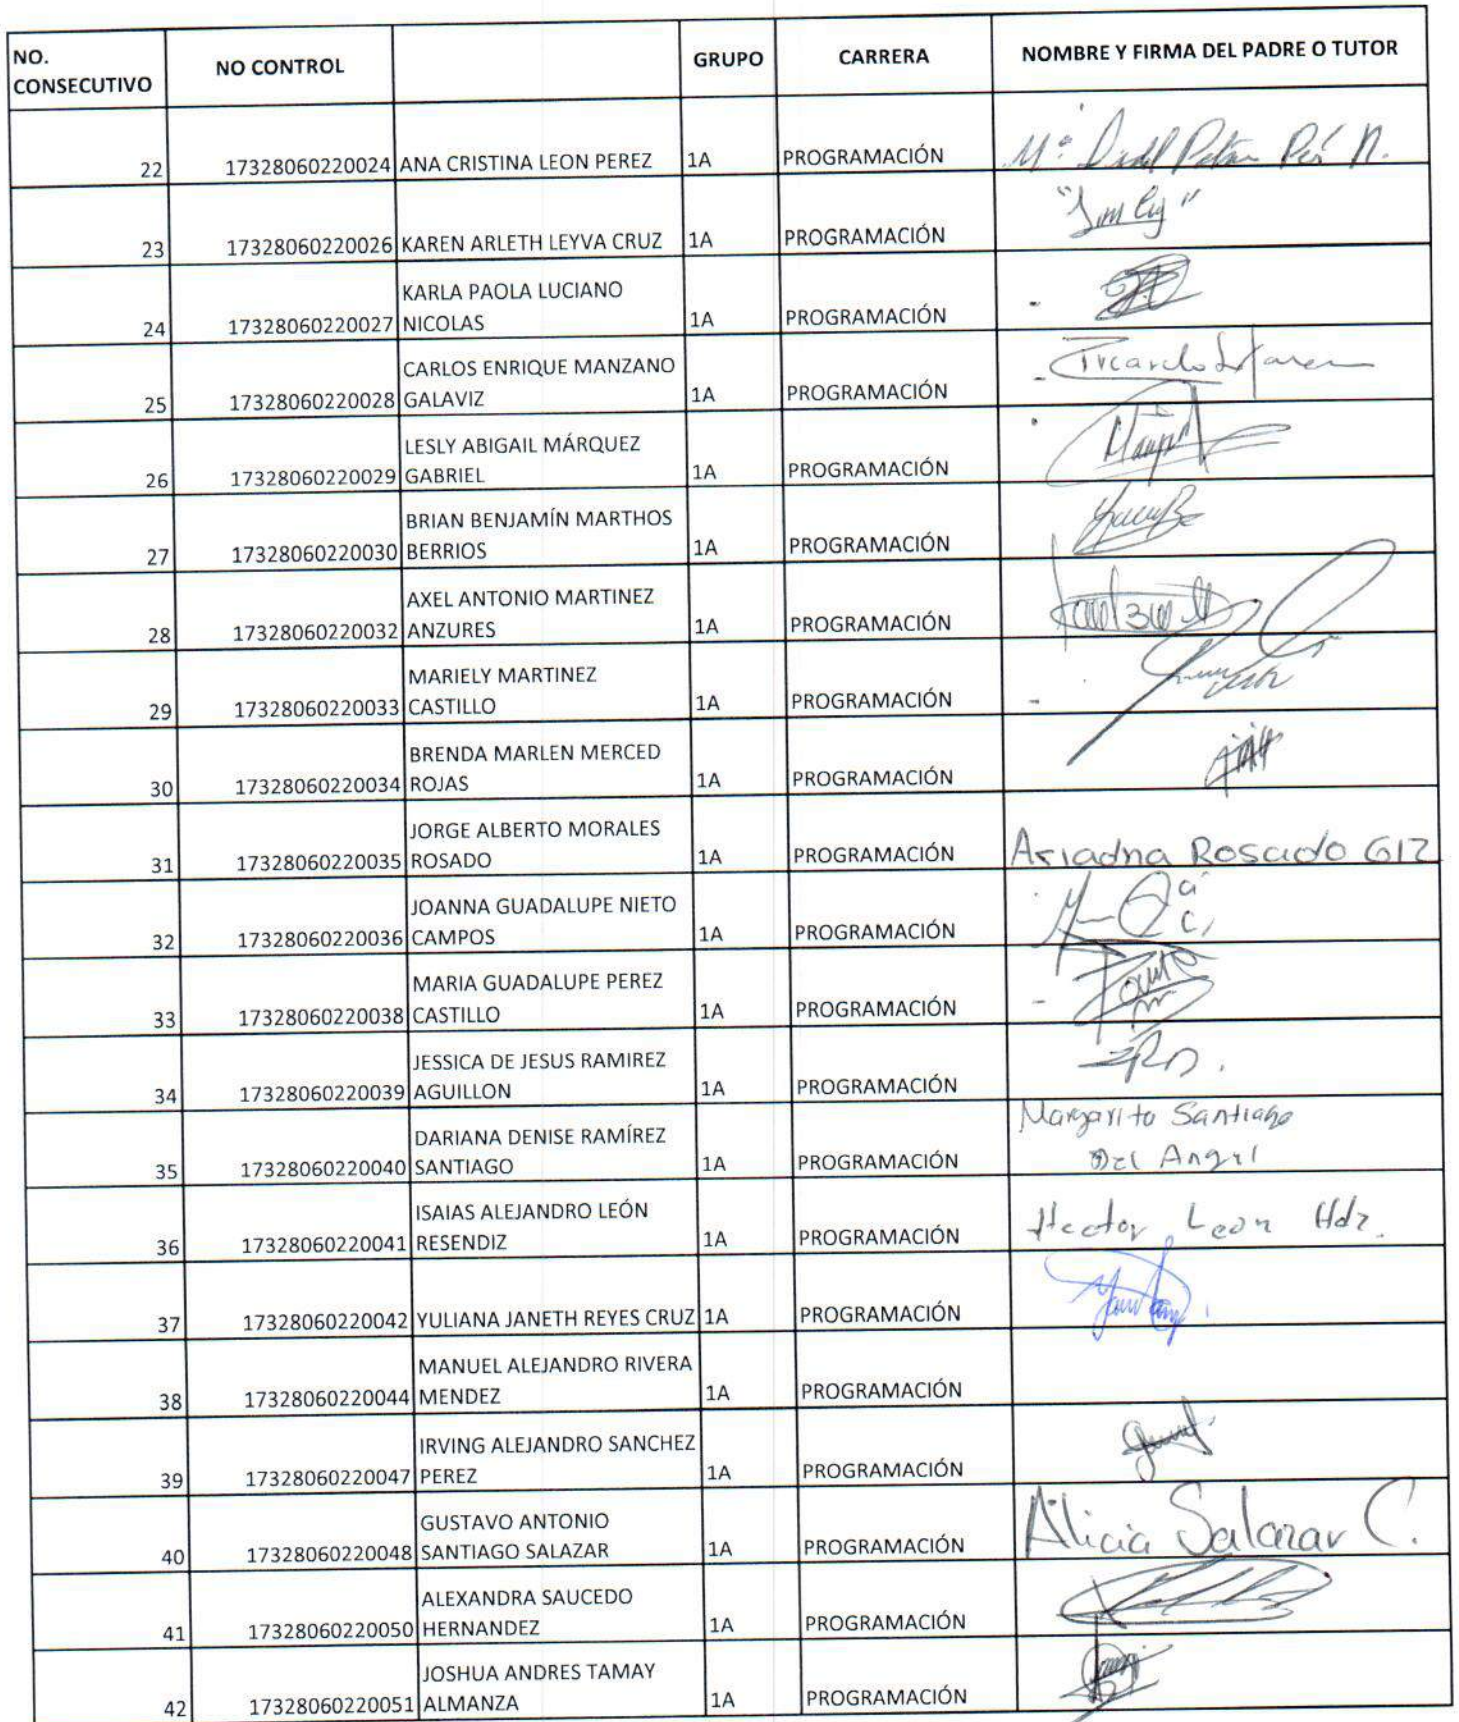 NO. CONSECUTIVO NO CONTROL GRUPO CARRERA NOMBRE Y FIRMA DEL PADRE O TUTOR
22 17328060220024 ANA CRISTINA LEON PEREZ 1A PROGRAMACIÓN
23 17328060220026 KAREN ARLETH LEYVA CRUZ 1A PROGRAMACIÓN
24 17328060220027 KARLA PAOLA LUCIANO NICOLAS 1A PROGRAMACIÓN
25 17328060220028 CARLOS ENRIQUE MANZANO GALAVIZ 1A PROGRAMACIÓN
26 17328060220029 LESLY ABIGAIL MÁRQUEZ GABRIEL 1A PROGRAMACIÓN
27 17328060220030 BRIAN BENJAMÍN MARTHOS BERRIOS 1A PROGRAMACIÓN
28 17328060220032 AXEL ANTONIO MARTINEZ ANZURES 1A PROGRAMACIÓN
29 17328060220033 MARIELY MARTINEZ CASTILLO 1A PROGRAMACIÓN
30 17328060220034 BRENDA MARLEN MERCED ROJAS 1A PROGRAMACIÓN
31 17328060220035 JORGE ALBERTO MORALES ROSADO 1A PROGRAMACIÓN Ariadna Rosado G12
32 17328060220036 JOANNA GUADALUPE NIETO CAMPOS 1A PROGRAMACIÓN
33 17328060220038 MARIA GUADALUPE PEREZ CASTILLO 1A PROGRAMACIÓN
34 17328060220039 JESSICA DE JESUS RAMIREZ AGUILLON 1A PROGRAMACIÓN
35 17328060220040 DARIANA DENISE RAMÍREZ SANTIAGO 1A PROGRAMACIÓN Margarito Santiago Del Angel
36 17328060220041 ISAIAS ALEJANDRO LEÓN RESENDIZ 1A PROGRAMACIÓN Hector Leon Hdz.
37 17328060220042 YULIANA JANETH REYES CRUZ 1A PROGRAMACIÓN
38 17328060220044 MANUEL ALEJANDRO RIVERA MENDEZ 1A PROGRAMACIÓN
39 17328060220047 IRVING ALEJANDRO SANCHEZ PEREZ 1A PROGRAMACIÓN
40 17328060220048 GUSTAVO ANTONIO SANTIAGO SALAZAR 1A PROGRAMACIÓN Alicia Salazar C.
41 17328060220050 ALEXANDRA SAUCEDO HERNANDEZ 1A PROGRAMACIÓN
42 17328060220051 JOSHUA ANDRES TAMAY ALMANZA 1A PROGRAMACIÓN